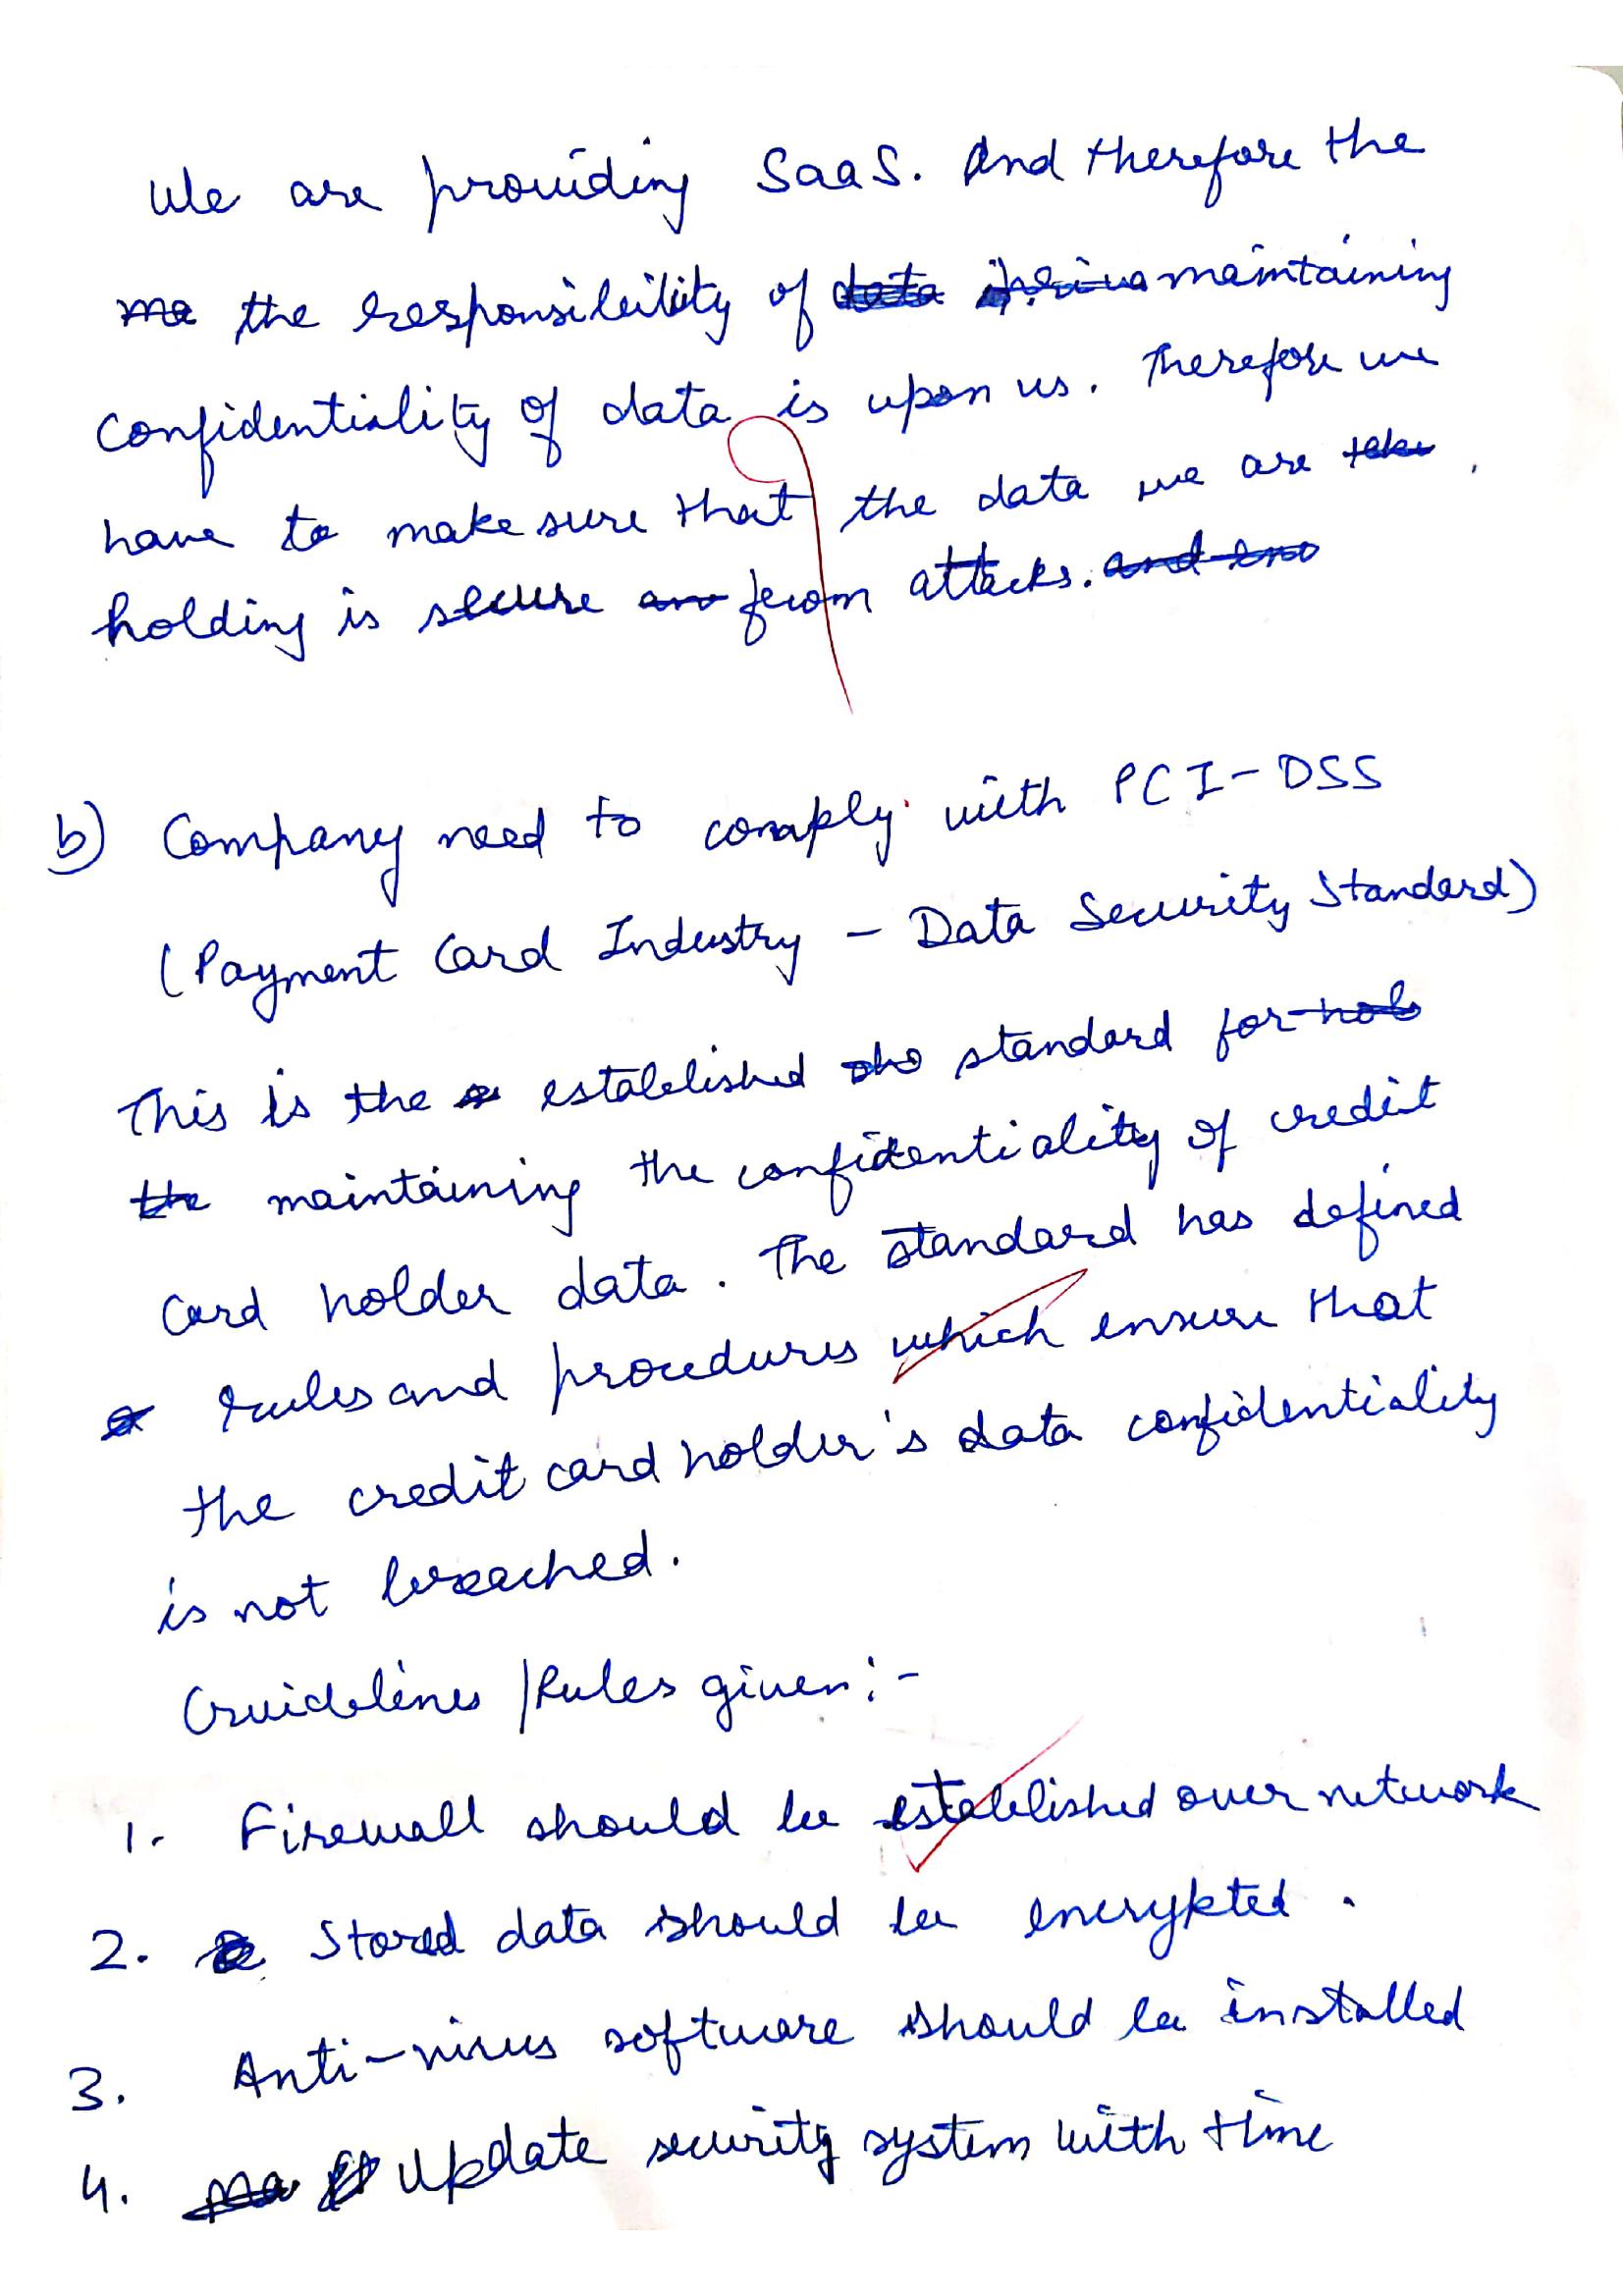 We are providing SaaS. And therefore the
the responsibility of maintaining
confidentiality of data is upon us. Therefore we
have to make sure that the data we are
holding is secure from attacks.
b) Company need to comply with PCI-DSS
(Payment Card Industry - Data Security Standard)
This is the established standard for
maintaining the confidentiality of credit
card holder data. The standard has defined
rules and procedures which ensure that
the credit card holder's data confidentiality
is not breached.
Guidelines /Rules given:-
1. Firewall should be established over network
2. Stored data should be encrypted.
3. Anti-virus software should be installed
4. Update security system with time